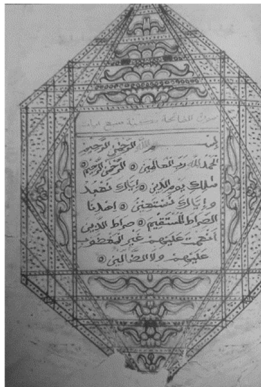 سورة الفاتحة سبع
بسم الله الرحمن الرحيم
الحمد لله رب العالمين ۝ الرحمن الرحيم ۝
ملك يوم الدين ۝ إياك نعبد
وإياك نستعين ۝ اهدنا
الصراط المستقيم ۝ صراط الذين
أنعمت عليهم غير المغضوب
عليهم ولا الضالين ۝